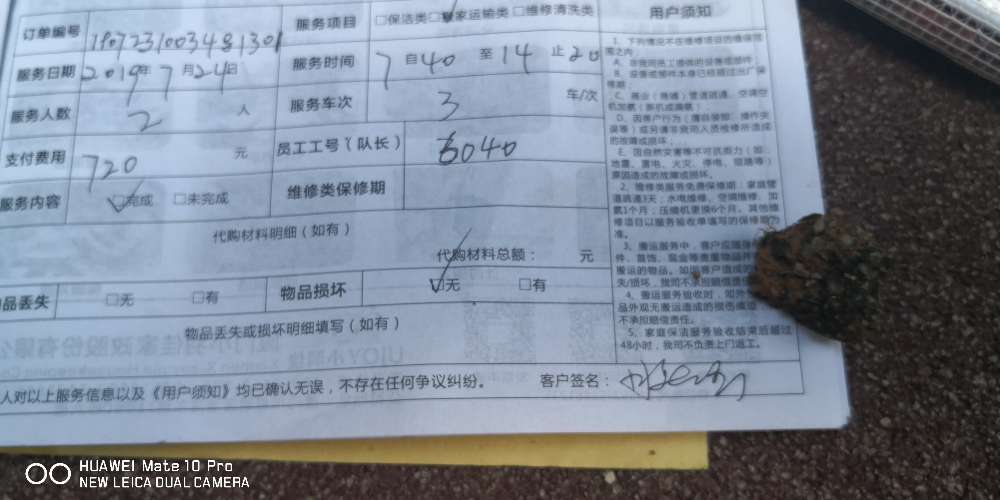 订单编号 1907231003481301 服务项目 □保洁类□搬家运输类 □维修清洗类
服务日期 2019年 7月24日 服务时间 7 自40 至 14 止20
服务人数 2 人 服务车次 3 车/次
支付费用 720 元 员工工号（队长） 6040
服务内容 □完成 □未完成 维修类保修期
代购材料明细（如有）
代购材料总额： 元
品丢失 □无 □有 物品损坏 □无 □有
物品丢失或损坏明细填写（如有）
人对以上服务信息以及《用户须知》均已确认无误，不存在任何争议纠纷。 客户签名：
用户须知
1、下列情况不在维修项目的维保范
围之内
A、非我司员工提供的安装或部件
C、商业（商铺）管道疏通、空调空
D、因客户行为（擅自装卸、操作失
误等）或另请非我司人员维修所造成
的故障或损坏；
E、因自然灾害等不可抗原力（如：
地震、雷电、火灾、停电、
原因造成的故障或损坏。
2、维修类服务免费保修期：家庭管
道疏通3天；水电维修、空调维修、加
氟1个月；压缩机更换6个月。其他维
修项目以服务验收单填写的保修期为
准。
3、搬运服务中，客户应随身
件、首饰、现金等贵重物品
搬运的物品。如因客户造成的
失/损坏，我司不承担赔偿责
4、搬运服务验收时，如外
品外观无搬运造成的损伤痕迹
不承担赔偿责任。
5、家庭保洁服务验收结束后超过
48小时，我司不负责上门返工。
HUAWEI Mate 10 Pro
NEW LEICA DUAL CAMERA